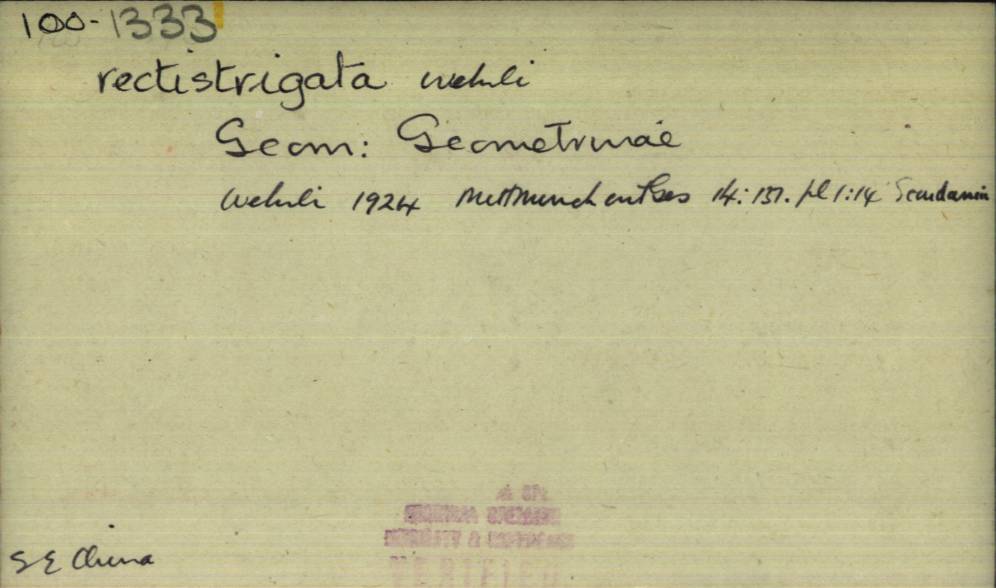 100-1333
rectistrigata Wehrli
Geom: Geometrinae
Wehrli 1924 Mitt Munch ent Ges 14: 131. pl 1:14
VERIFIED
S E China